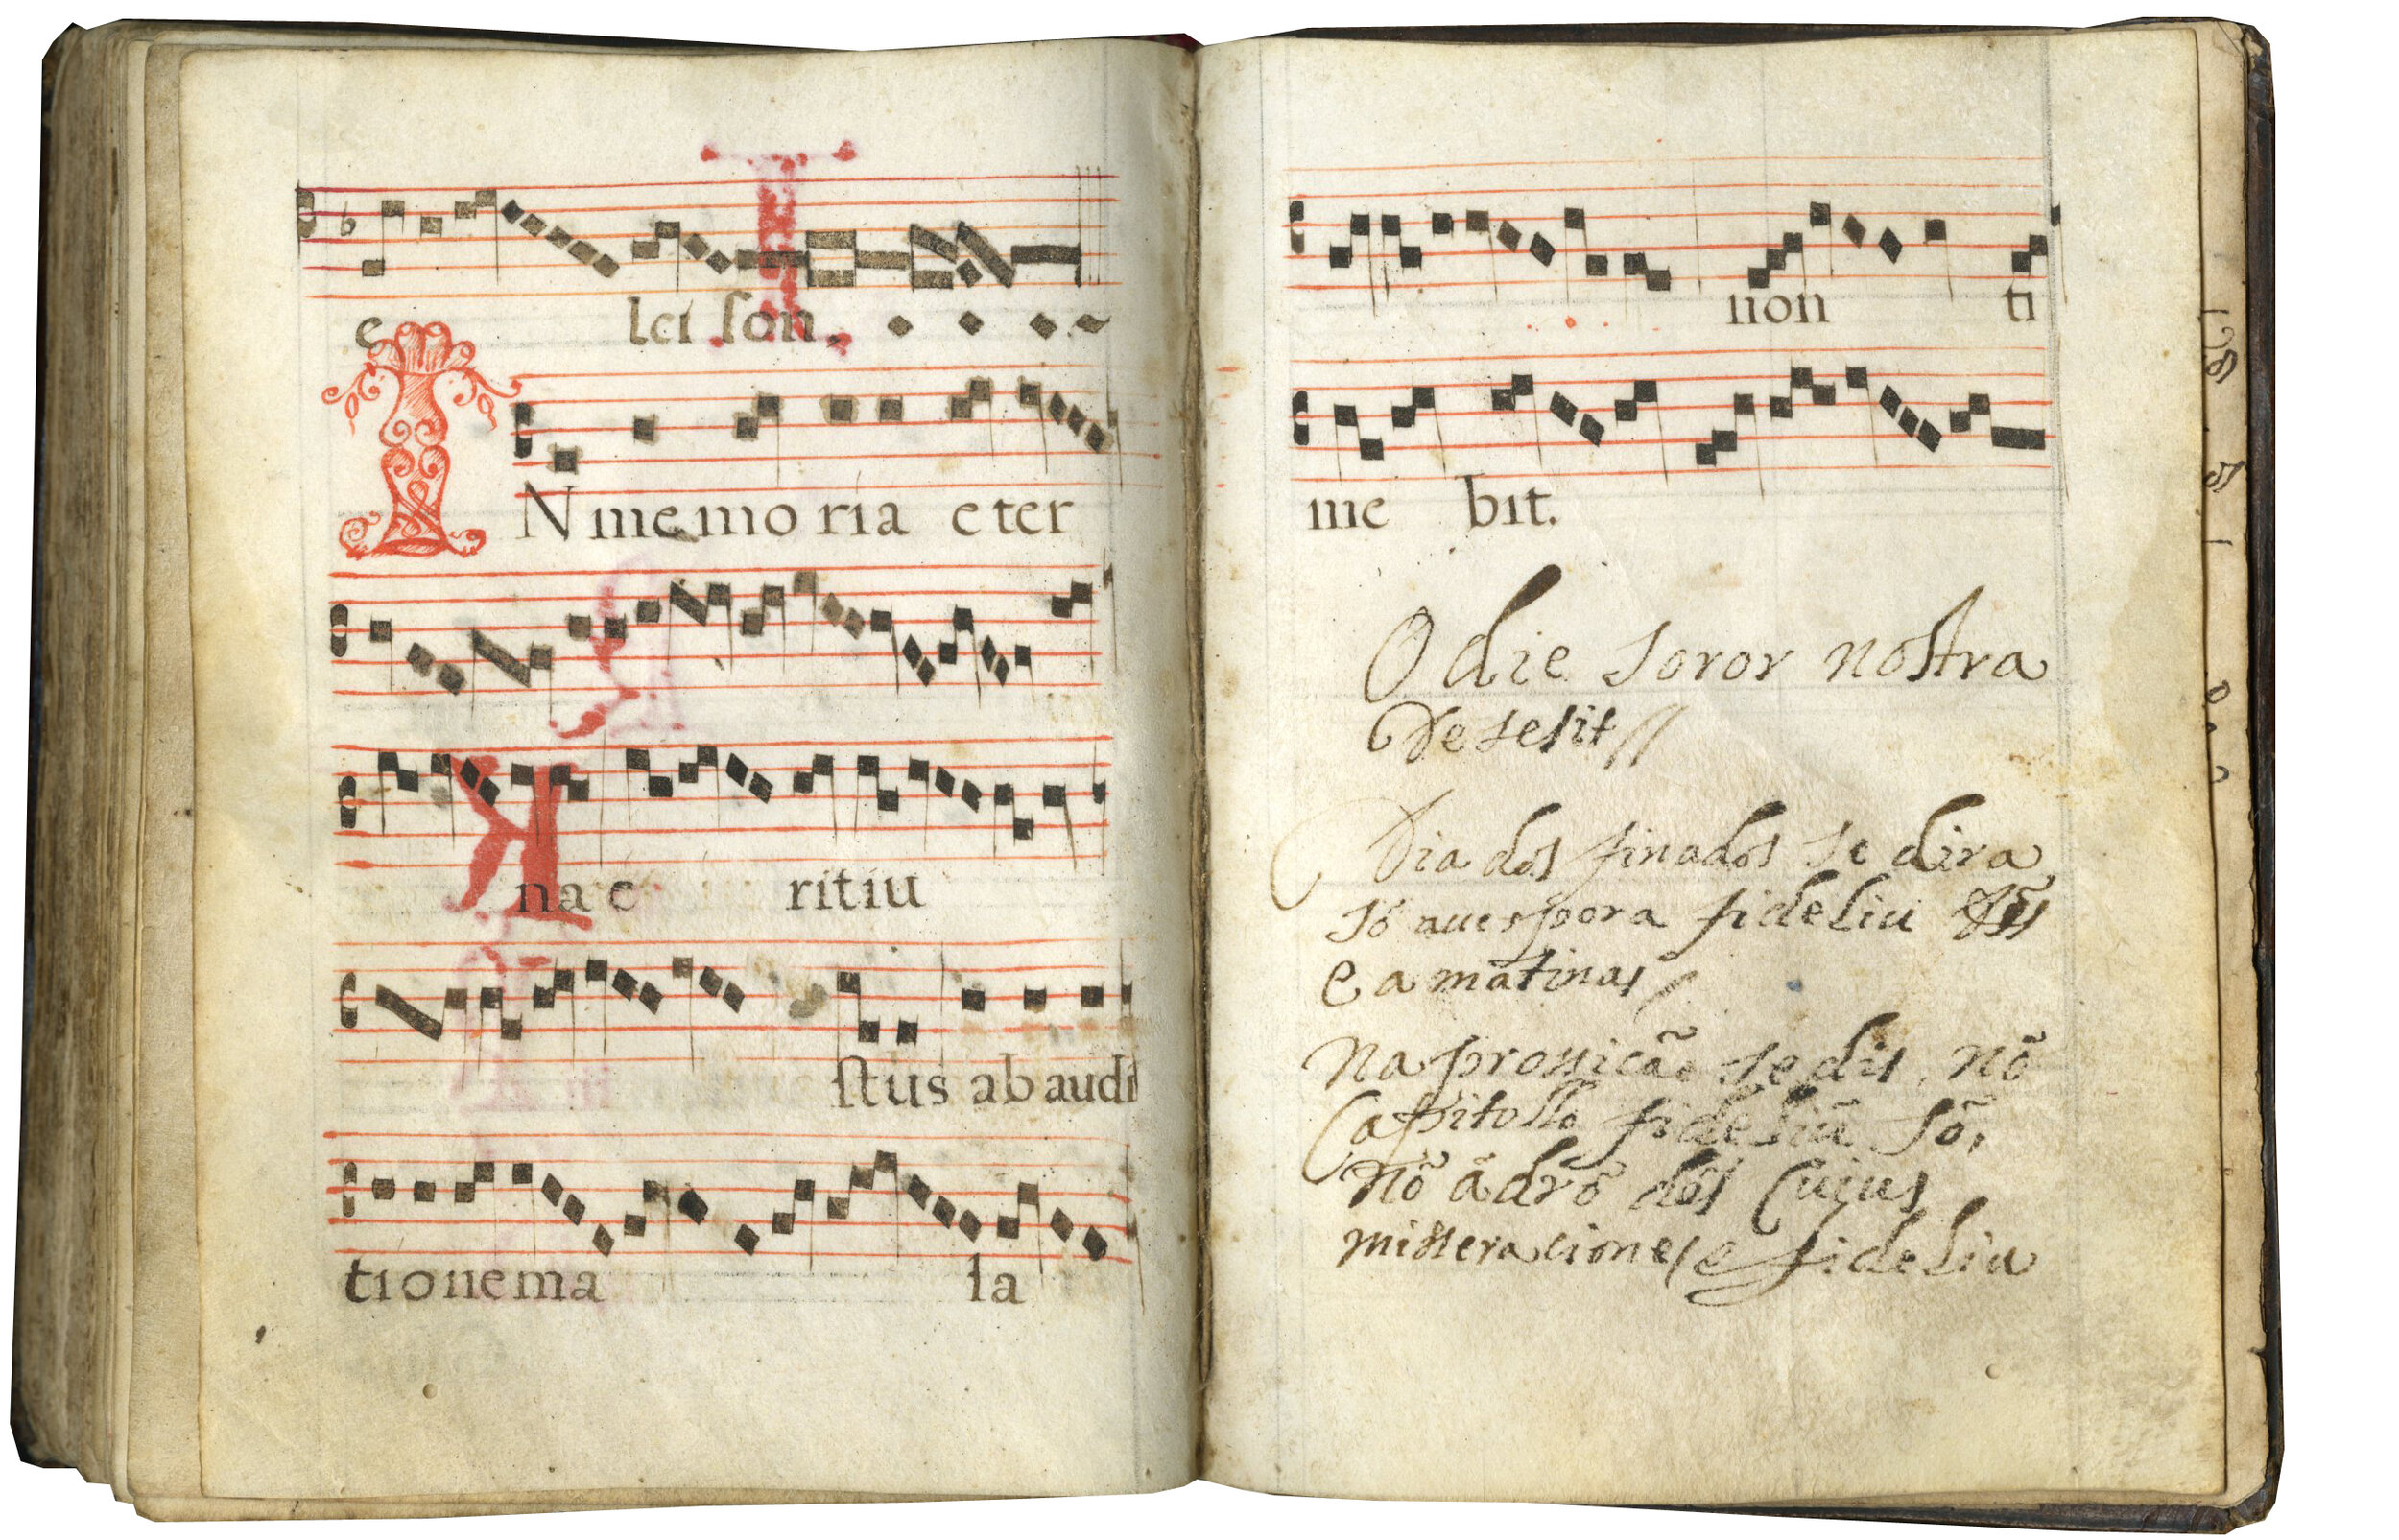 e lei son.
IN memoria eter
na e ritiu
stus ab audi
tione ma la
non ti
me bit.
Odie soror nostra
desesit //
Dia dos finados se dira
só auespora fideliu
e a matinas /
Na prossicão se dis, nó
Cappitollo fideliũ só,
nó ádró dós Cuius
misseraciones e fideliu